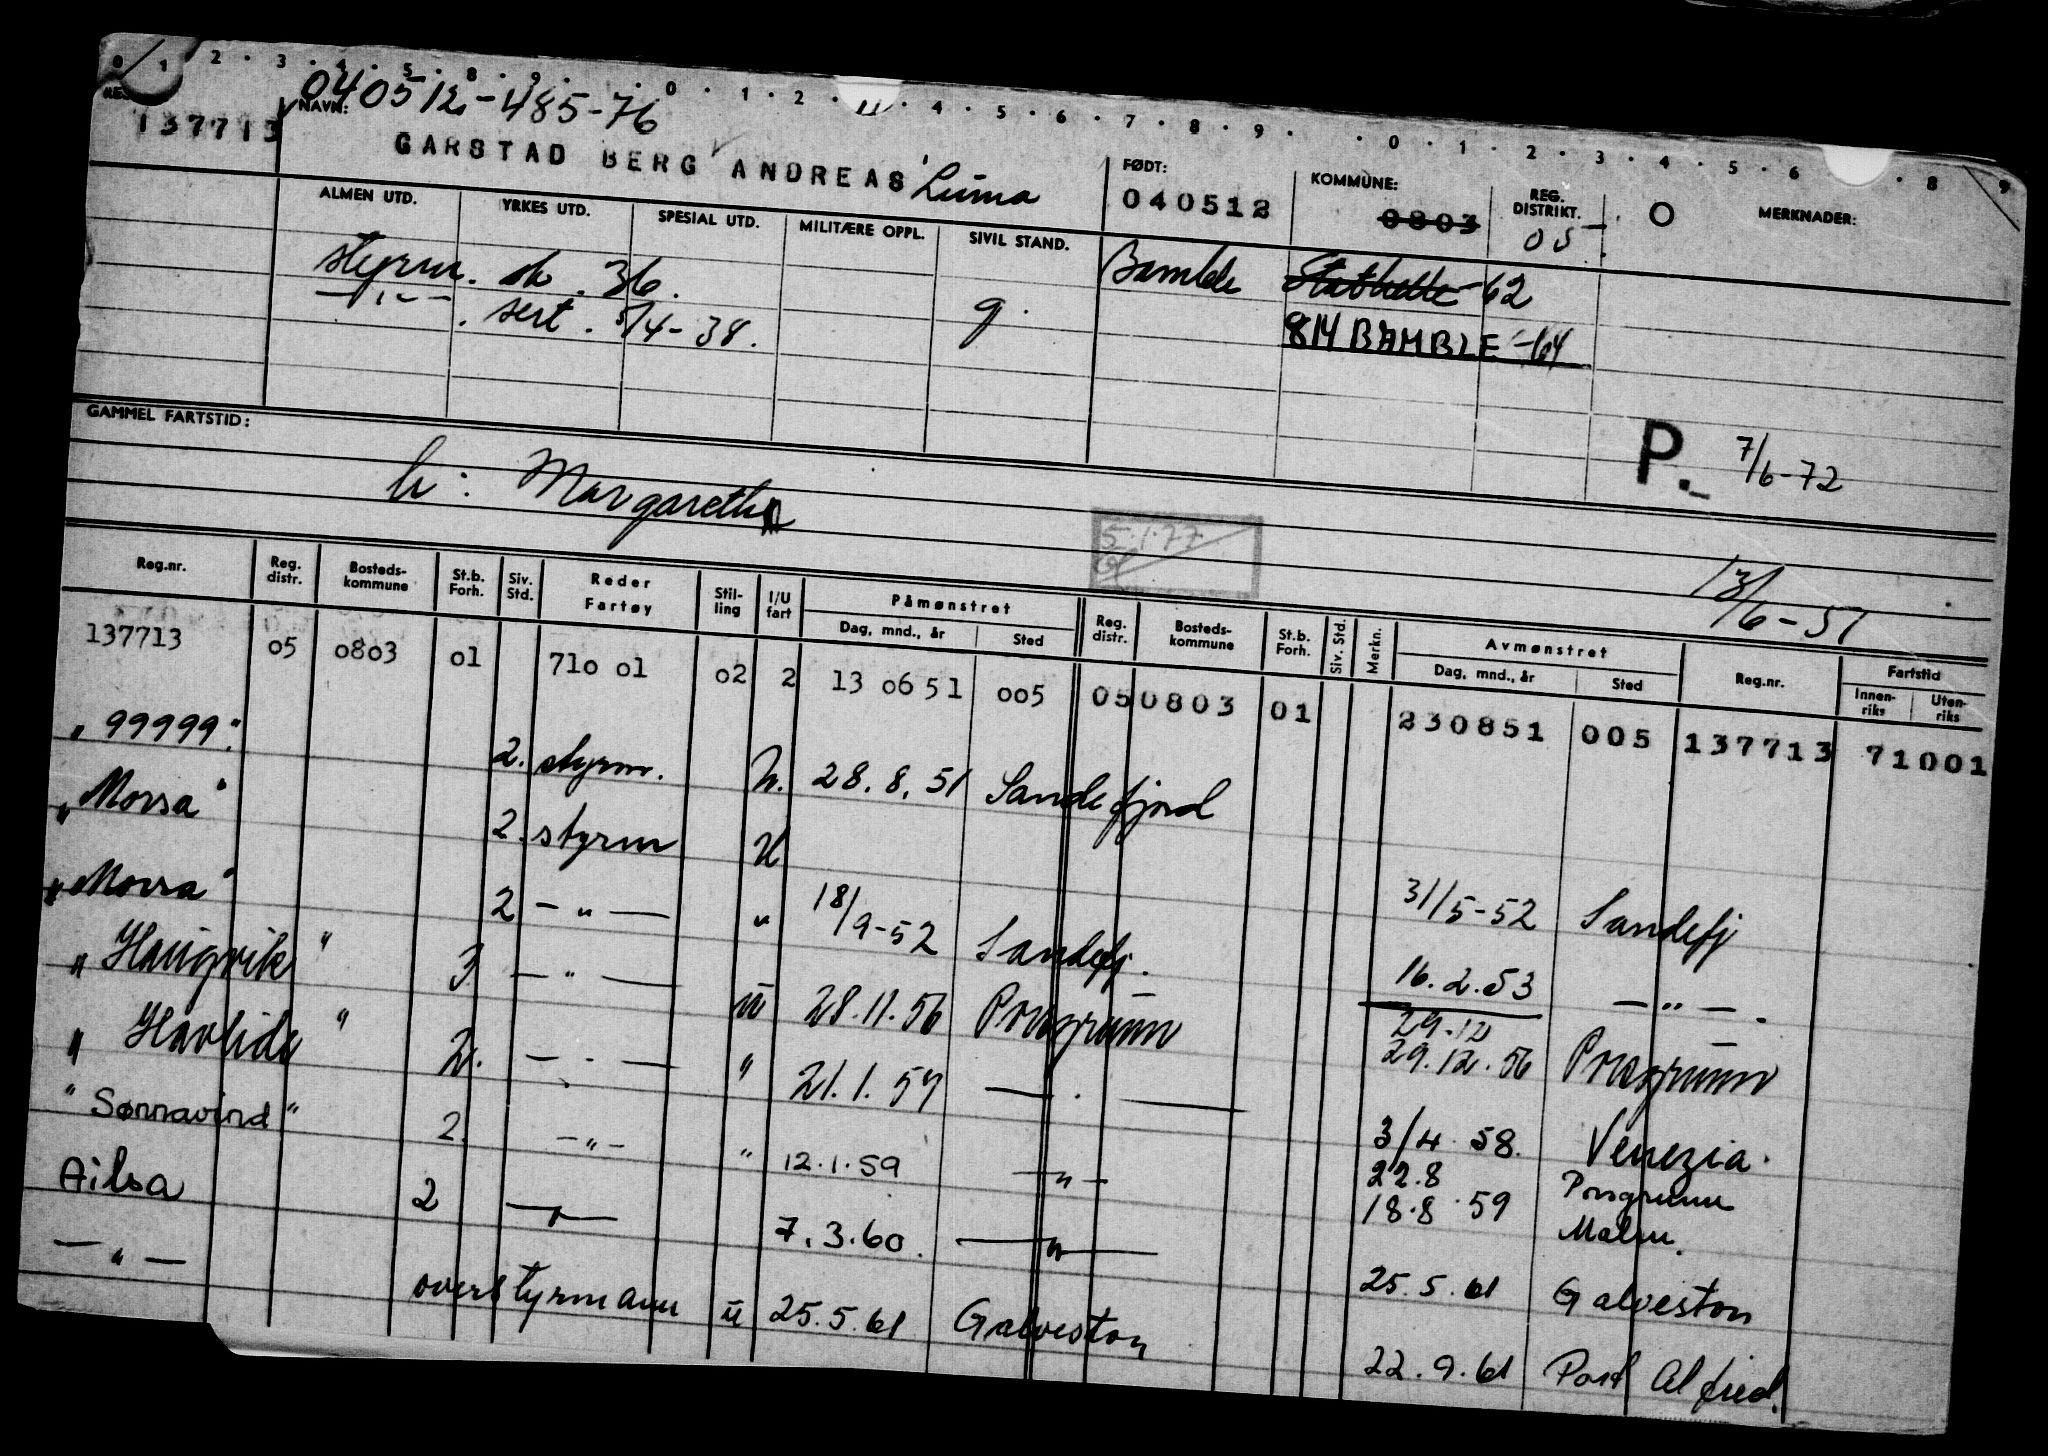 0 1 2 · 3 · 4 · 5 · 8 · 9 · · 0 · 1 · 2 · 11 · 4 · 5 · 6 · 7 · 8 · 9 · · 0 · 1 · 2 · 3 · 4 · 5 · 6 · 8 · 9
040512-485-76
137713 NAVN: GARSTAD BERG ANDREAS Luma FØDT: 040512 KOMMUNE: 0803 REG. DISTRIKT. 05 O MERKNADER:
ALMEN UTD. YRKES UTD. SPESIAL UTD. MILITÆRE OPPL. SIVIL STAND.
styrm. sk. 36. Bamble Stathelle -62
—"— sert. 5/4-38. g. 814 BAMBLE -64
GAMMEL FARTSTID: P. 7/6-72
h: Margaretha
5.1.77
13/6-51
Reg.nr. Reg. distr. Bosteds-kommune St.b. Forh. Siv. Std. Reder Fartøy Stil-ling I/U fart Påmønstret Dag, mnd., år Sted Reg. distr. Bosteds-kommune St.b. Forh. Siv. Std. Merkn. Avmønstret Dag, mnd., år Sted Reg.nr. Fartstid Innen-riks Uten-riks
137713 05 0803 01 710 01 02 2 13 06 51 005 05 0803 01 230851 005 137713 71001
"99999" 2. styrm. U. 28.8.51 Sandefjord
"Morsa" 2. styrm U 31/5-52 Sandefj
"Morsa" 2 —"— " 18/9-52 Sandefj. 16.2.53 —"—.
"Haugvik" 3 —"— U 28.11.56 Porsgrunn 29.12 29.12.56 Porsgrunn
"Havlide" 2. —"— " 21.1.57 —"— 3/4 58. Venezia.
"Sønnavind" 2. —"— " 12.1.59 —"— 22.8 Porsgrunn
18.8.59 Malm.
Ailsa 2 —"— 7.3.60. —"— 25.5.61 Galveston
—"— overstyrmann U 25.5.61 Galveston 22.9.61 Port Alfred.